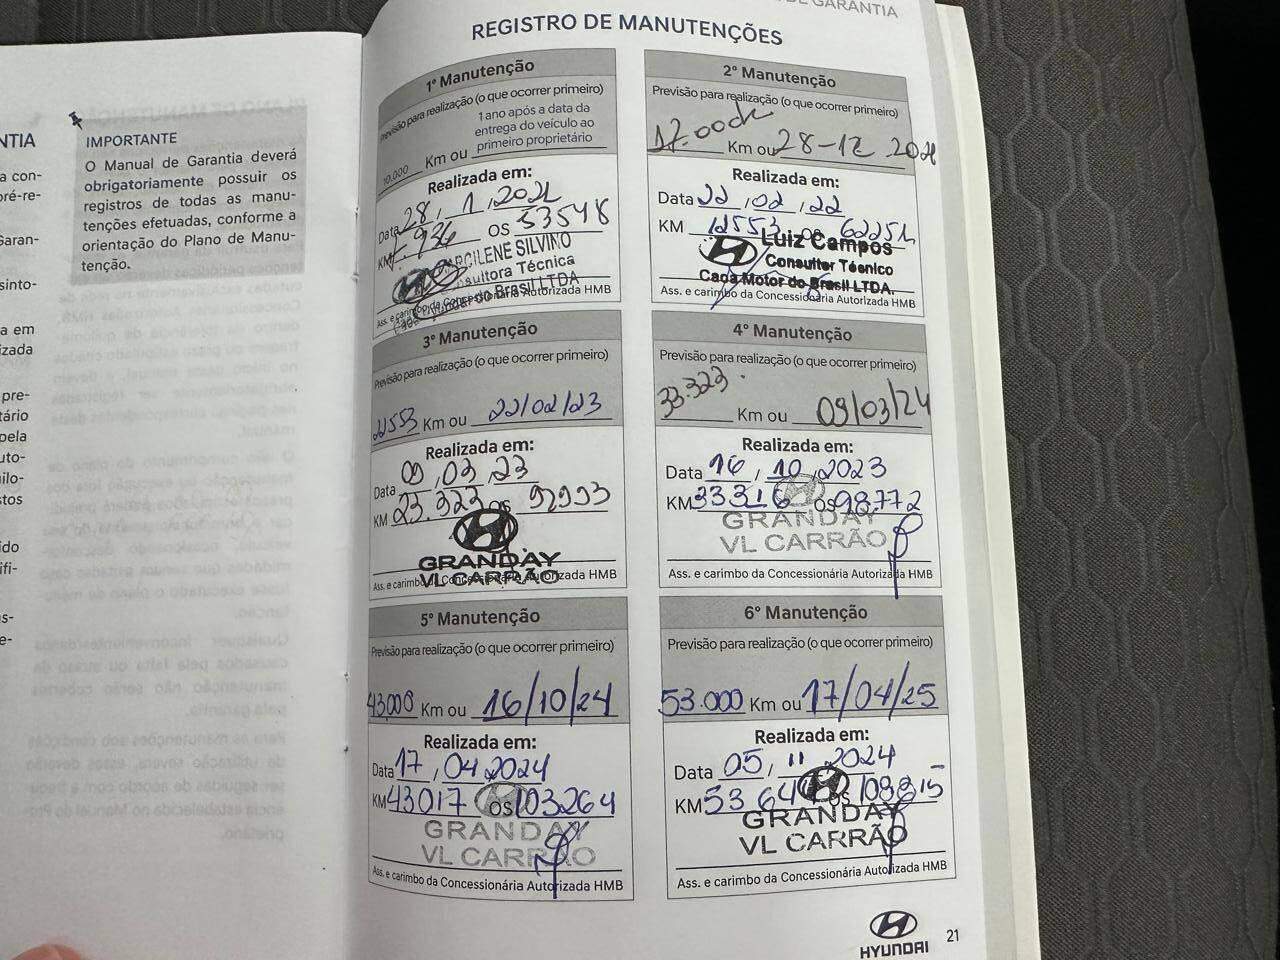 DE GARANTIA
REGISTRO DE MANUTENÇÕES
NTIA
a con-
oré-re-
Garan-
sinto-
a em
izada
pre-
tário
pela
uto-
uilo-
stos
ido
ifi-
us-
e-
IMPORTANTE
O Manual de Garantia deverá
obrigatoriamente possuir os
registros de todas as manu-
tenções efetuadas, conforme a
orientação do Plano de Manu-
tenção.
1º Manutenção
Previsão para realização (o que ocorrer primeiro)
10.000 Km ou 1 ano após a data da
entrega do veículo ao
primeiro proprietário
Realizada em:
Data 28, 1, 2021
KM 7.936 OS 53548
ARCILENE SILVINO
Consultora Técnica
do Brasil LTDA
Ass. e carimbo da Concessionária Autorizada HMB
2º Manutenção
Previsão para realização (o que ocorrer primeiro)
Km ou 28-12
Realizada em:
Data 22, 02, 22
KM 12553 OS
Luiz Campos
Consultor Técnico
Caoa Motor do Brasil LTDA.
Ass. e carimbo da Concessionária Autorizada HMB
3º Manutenção
Previsão para realização (o que ocorrer primeiro)
22553 Km ou 22/02/23
Realizada em:
Data 09, 03, 23
KM 23.323 OS 92993
GRANDAY
VL CARRÃO
Ass. e carimbo da Concessionária Autorizada HMB
4º Manutenção
Previsão para realização (o que ocorrer primeiro)
33.323 Km ou 09/03/24
Realizada em:
Data 16, 10, 2023
KM 33316 OS 98772
GRANDAY
VL CARRÃO
Ass. e carimbo da Concessionária Autorizada HMB
5º Manutenção
Previsão para realização (o que ocorrer primeiro)
43.000 Km ou 16/10/24
Realizada em:
Data 17, 04, 2024
KM 43017 OS 103264
GRANDAY
VL CARRÃO
Ass. e carimbo da Concessionária Autorizada HMB
6º Manutenção
Previsão para realização (o que ocorrer primeiro)
53.000 Km ou 17/04/25
Realizada em:
Data 05, 11, 2024
KM 53 641 OS 109815
GRANDAY
VL CARRÃO
Ass. e carimbo da Concessionária Autorizada HMB
HYUNDAI
21